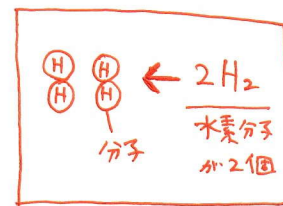 H H ← 2H₂
H H
水素分子
が2個
分子